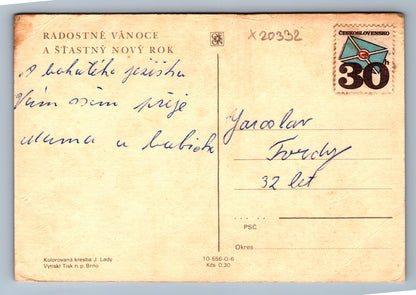 RADOSTNÉ VÁNOCE
A ŠŤASTNÝ NOVÝ ROK
A bohatého ježíška
Vám všem přeje
mama a babička
Kolorovaná kresba J. Lady
Vytiskl Tisk n. p. Brno
X20332
ČESKOSLOVENSKO
30h
Jaroslav
Tvrdy
32 let
PSČ
Okres
10-556-O-6
Kčs 0,30